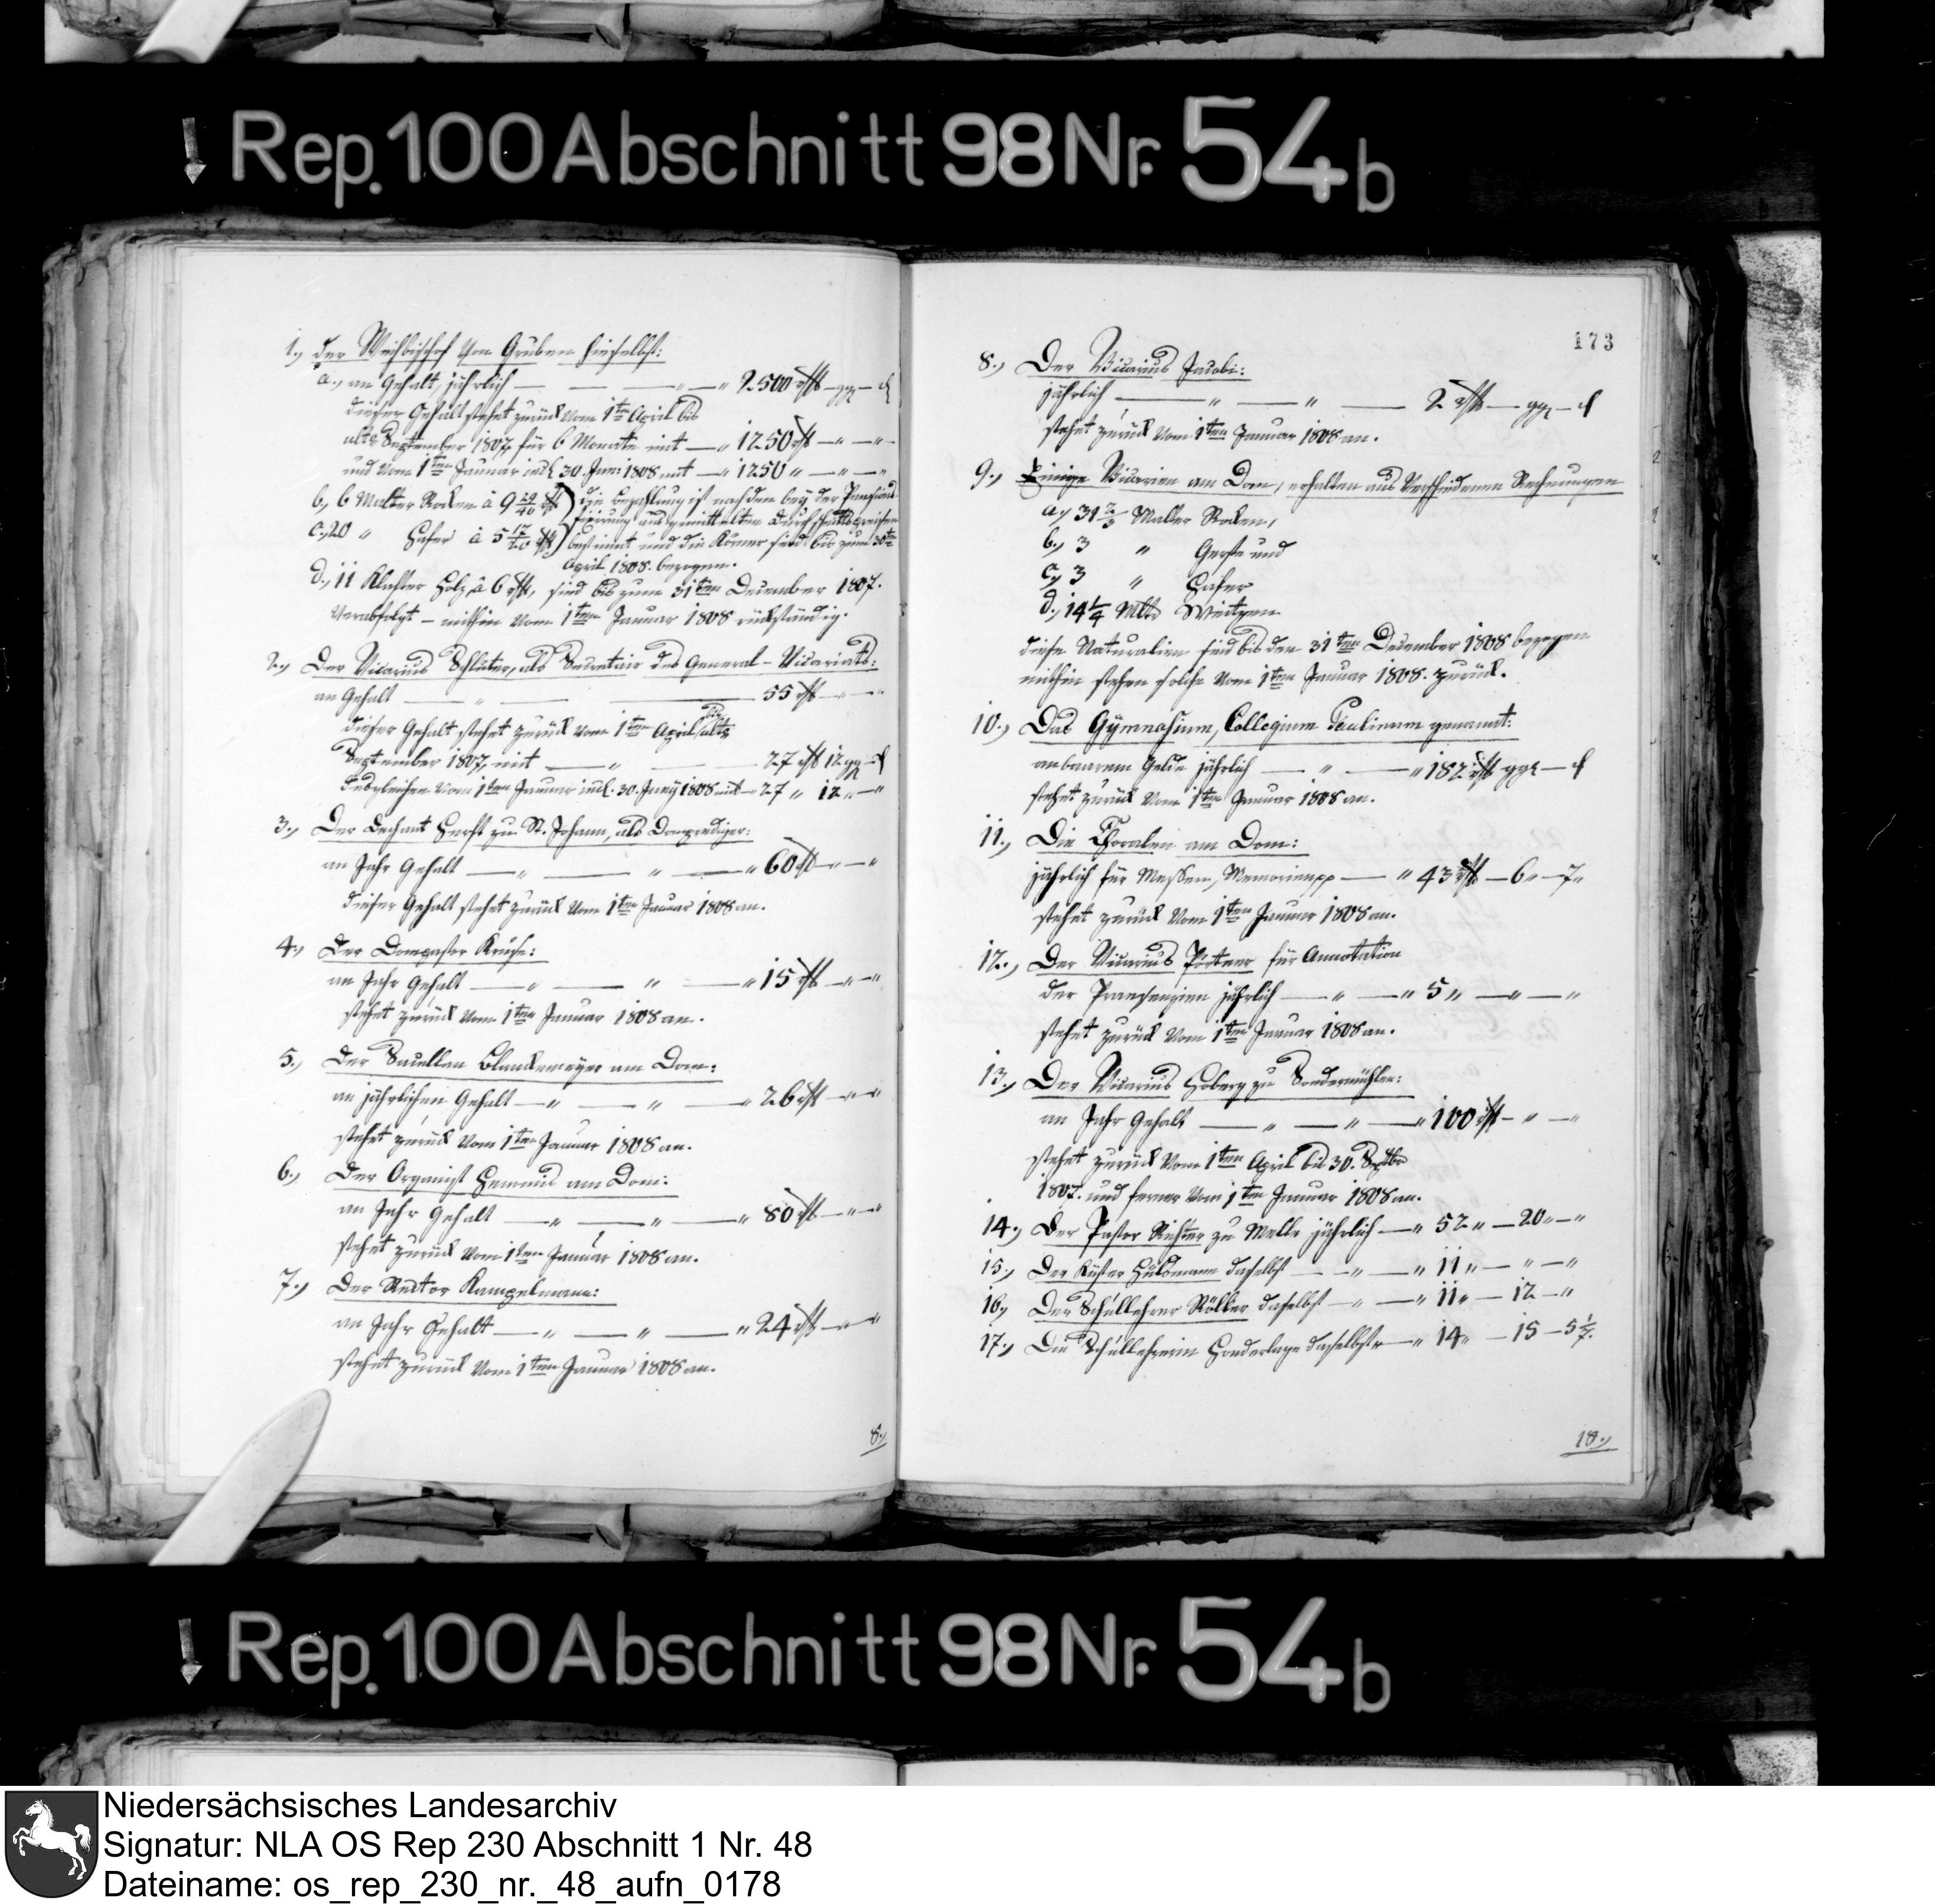 Rep. 100 Abschnitt 98 Nr. 54 b
1., der Weihbischof von Gruben hieselbst:
a., an Gehalt, jährlich — — — „ — „ 2500 rthl — ggr — d
dieser Gehalt stehet zurück vom 1ten April bis
ult. September 1807, für 6 Monate mit — „ 1250 rthl — „ — „
und vom 1ten Januar incl. 30. Juni 1808 mit — „ 1250 „ — „ — „
b., 6 Malter Rocken à 9 29/40 rthl } die Bezahlung ist nach den bey der
c., 20 „ Hafer à 5 rthl } und die Körner sind bis zum 30ten
April 1808. bezogen.
d., 11 Klafter Holz, à 6 rthl, sind bis zum 31ten December 1807.
verabfolgt — mithin vom 1ten Januar 1808 rückständig.
2., Der Vicarius Schlüter, als Secretair des General-Vicariats:
an Gehalt — „ — — 55 rthl — „ — „
dieser Gehalt stehet zurück vom 1ten April bis ult.
September 1807, mit — „ — 27 rthl 12 ggr — d
desgleichen vom 1ten Januar incl. 30. Juny 1808 mit — 27 „ 12 „ — „
3., Der Dechant Herft zu St. Johann, als Domprediger:
an Jahr Gehalt — „ — „ — „ 60 rthl — „ — „
dieser Gehalt stehet zurück vom 1ten Januar 1808 an.
4., Der Dompastor Kruse:
an Jahr Gehalt — „ — „ — „ 15 rthl — „ — „
stehet zurück vom 1ten Januar 1808 an.
5., Der Sacellan Blankemeyer am Dom:
an jährlichen Gehalt — „ — „ — „ 26 rthl — „ — „
stehet zurück vom 1ten Januar 1808 an.
6., Der Organist am Dom:
an Jahr Gehalt — „ — „ — „ 80 rthl — „ — „
stehet zurück vom 1ten Januar 1808 an.
7., Der Rector Kampelmann:
an Jahr Gehalt — „ — „ — „ 24 rthl — „ — „
stehet zurück vom 1ten Januar 1808 an.
8.,
173
8., Der Vicarius Jacobi:
jährlich — „ — „ — 2 rthl — ggr — d
stehet zurück vom 1ten Januar 1808 an.
9., Einige Vicarien am Dom, erhalten aus verschiedenen Rechnungen
a., 31 2/3 Malter Rocken,
b., 3 „ Gerste und
c., 3 „ Hafer
d., 14 1/4 Mltr Weitzen
diese Naturalien sind bis den 31ten December 1808 bezogen
mithin stehen solche vom 1ten Januar 1808. zurück.
10., Das Gymnasium, Collegium Paulinum genannt:
an baarem Gelde jährlich — „ — „ 182 rthl ggr — d
stehet zurück vom 1ten Januar 1808 an.
11., Die Choralen am Dom:
jährlich für Messen, Memorien pp — „ 43 rthl — 6 „ — 7 „
stehet zurück vom 1ten Januar 1808 an.
12., Der Vicarius Pörtner für Annotation
der Praesenzien jährlich — „ — „ 5 „ — „ — „
stehet zurück vom 1ten Januar 1808 an.
13., Der Vicarius Hoberg zu Sondermühlen:
an Jahr Gehalt — „ — „ — „ 100 rthl — „ — „
stehet zurück vom 1ten April bis 30. Septbr
1807. und ferner vom 1ten Januar 1808 an.
14., Der Pastor Richter zu Melle jährlich — „ 52 „ — 20 „ — „
15., Der Küster Hülsmann daselbst — „ — „ 11 „ — „ — „
16., Der Schullehrer Rölker daselbst — „ — „ 11 „ — 12 — „
17., Die Schullehrerin Honderlage daselbst „ — „ 14 „ — 15 — 5 1/7.
18.,
Rep. 100 Abschnitt 98 Nr. 54 b
Niedersächsisches Landesarchiv
Signatur: NLA OS Rep 230 Abschnitt 1 Nr. 48
Dateiname: os_rep_230_nr._48_aufn_0178